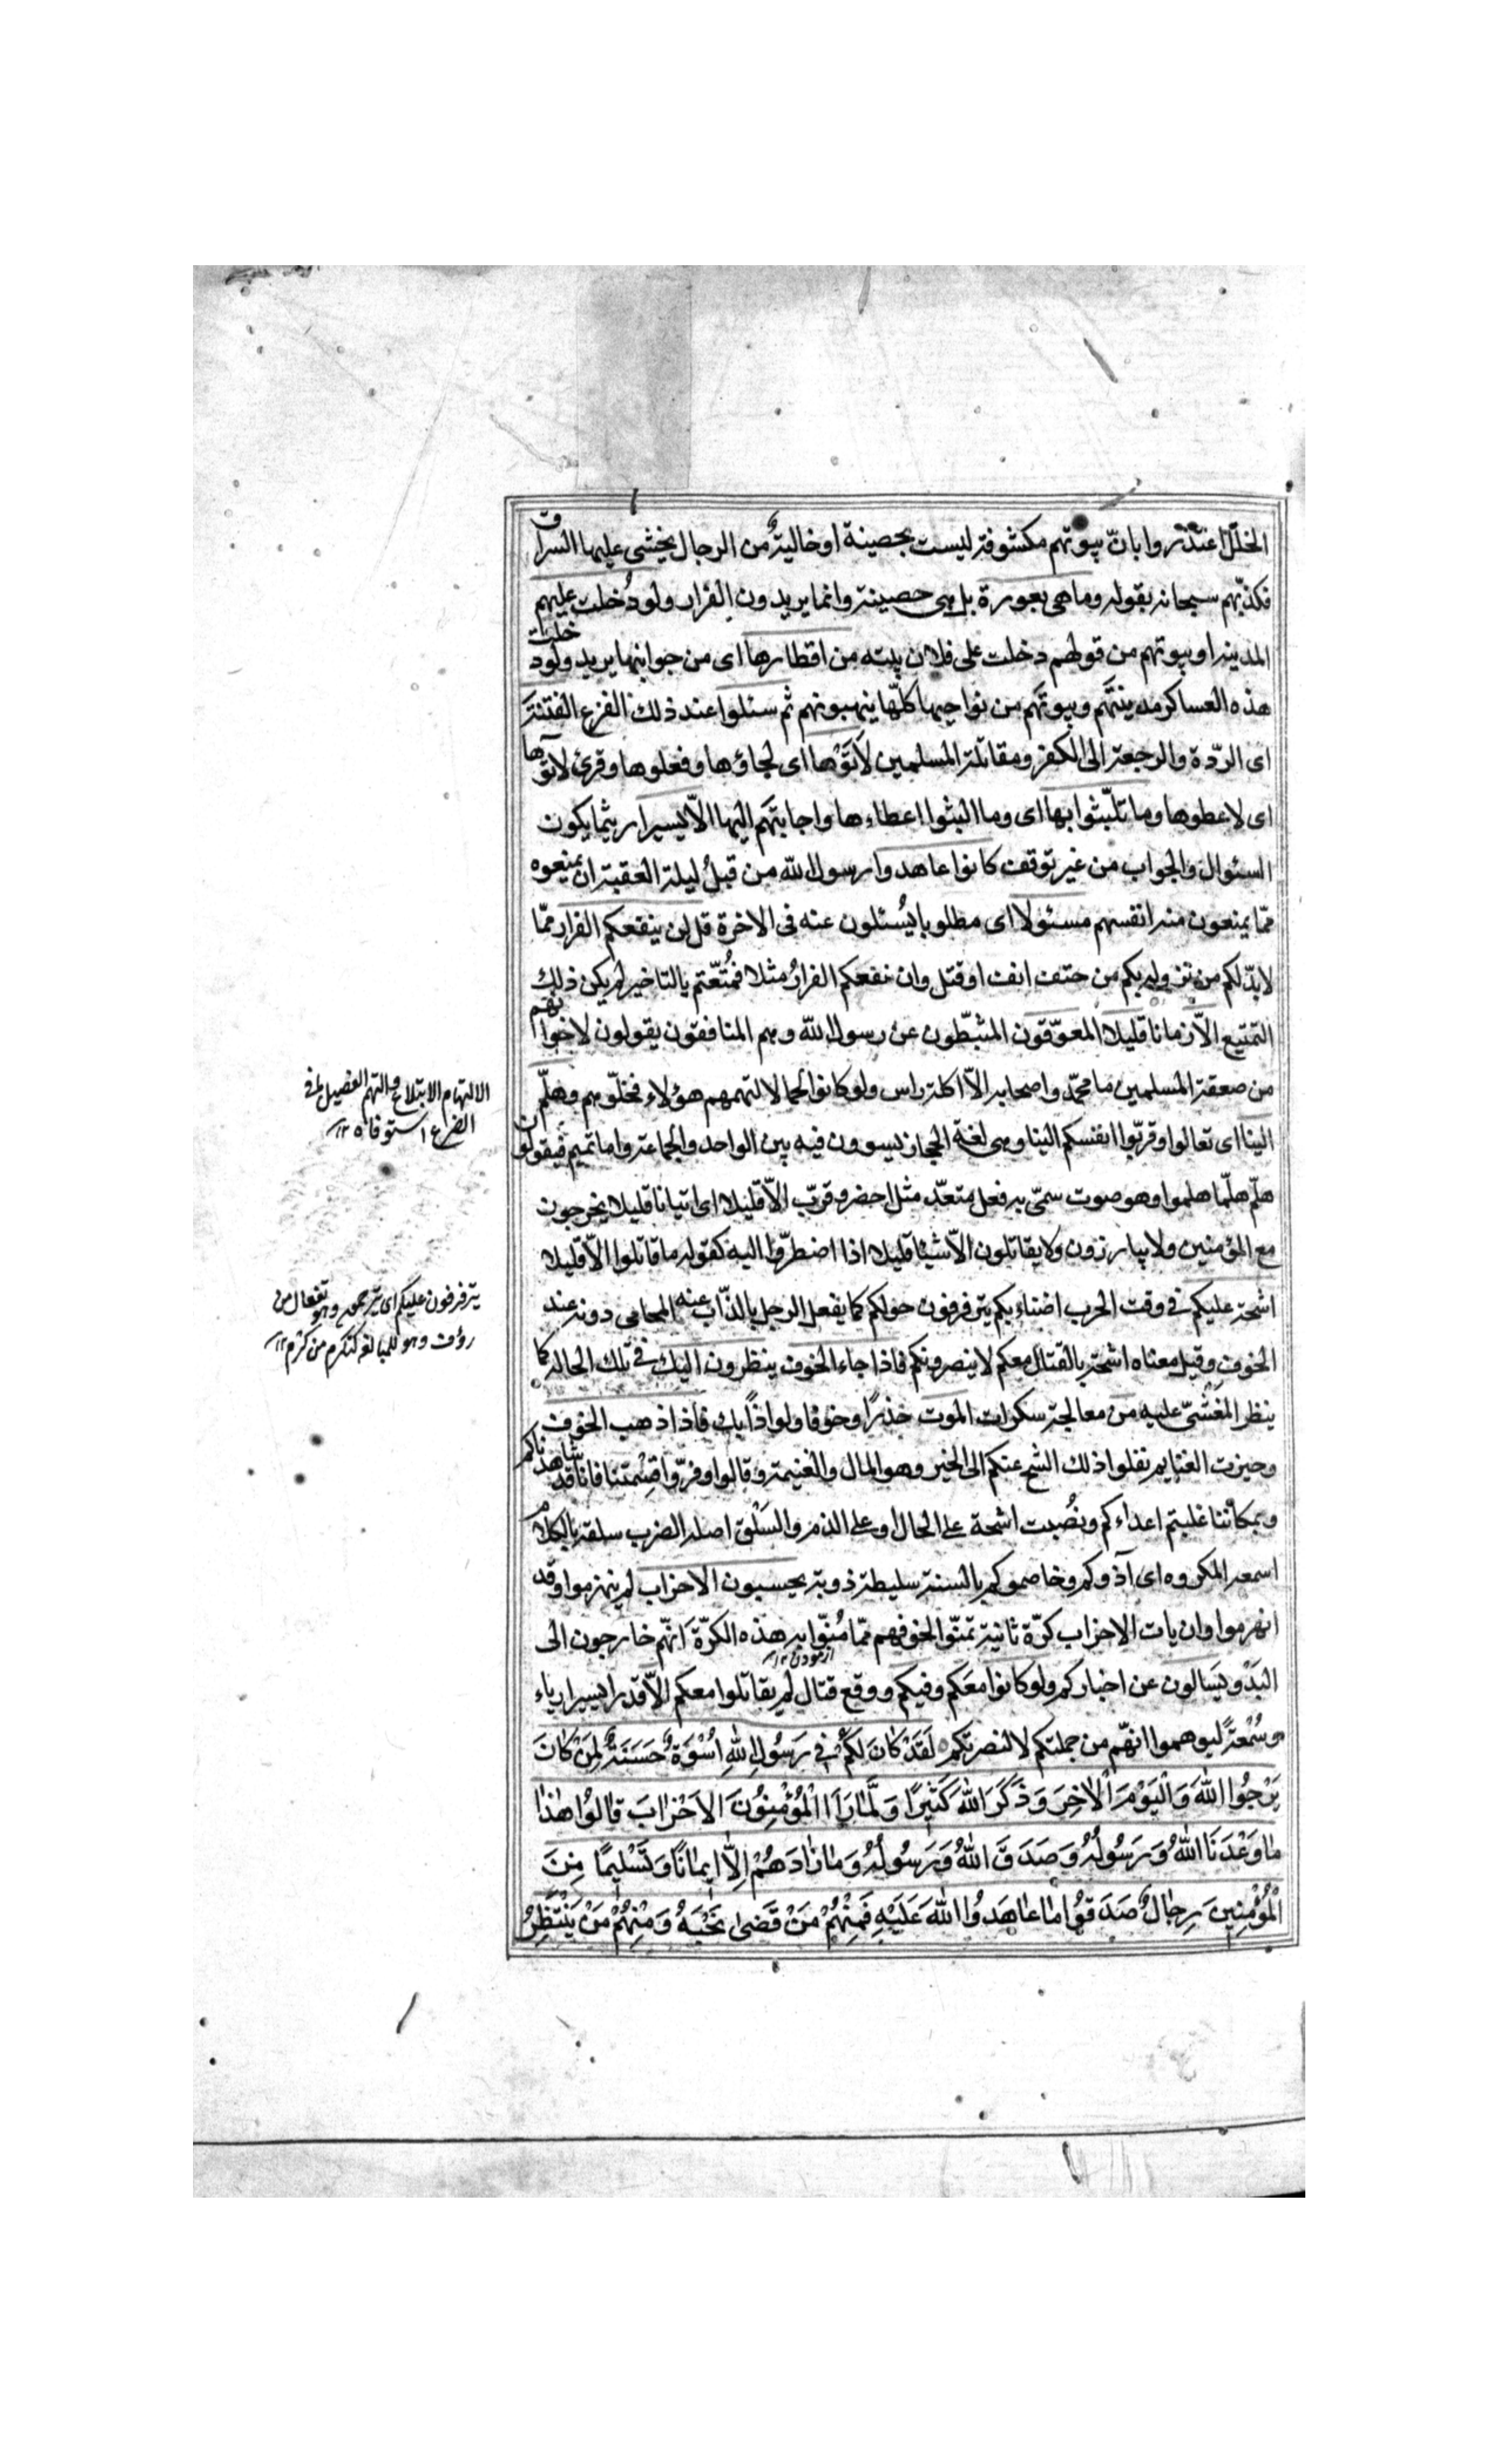 الخلل اعتذروا بانّ بيوتهم مكشوفة ليست بحصينة او خالية من الرجال يخشى عليها السراق
فكذّبهم سبحانه بقوله وما هى بعورة بل هى حصينة وانما يريدون الفرار ولو دُخلت عليهم
المدينة او بيوتهم من قولهم دخلت على فلان بيته من اقطارها اى من جوانبها يريد ولو دخلت
هذه العساكر مدينتهم وبيوتهم من نواحيها كلّها ينهبونهم ثم سئلوا عند ذلك الفزع الفتنة
اى الردّة والرجعة الى الكفر ومقاتلة المسلمين لَاَتَوْها اى لجاؤها وفعلوها وقرئ لآتوها
اى لاعطوها وما تلبّثوا بها اى وما البثوا اعطاءها واجابتهم اليها الّا يسيرا ريثما يكون
السئوال والجواب من غير توقف كانوا عاهدوا رسول اللّه من قبلُ ليلة العقبة ان يمنعوه
ممّا يمنعون منه انفسهم مسئولا اى مطلوبا يُسئلون عنه فى الاخرة قل لن ينفعكم الفرار ممّا
لا بدّ لكم من نزوله بكم من حتف انف او قتل وان نفعكم الفرارُ مثلا فمُتّعتم بالتاخير لم يكن ذلك
التمتيع الّا زمانا قليلا المعوّقون المثبّطون عن رسول اللّه وهم المنافقون يقولون لاخوانهم
من ضعفة المسلمين ما محمّد واصحابه الّا اكلة راس ولو كانوا لحما لالتهمهم هؤلاء فخلّوهم وهلمّ
الينا اى تعالوا وقرّبوا انفسكم الينا وهى لغة الحجاز يسوون فيه بين الواحد والجماعة واما تميم فيقولون
هلمّ هلمّا هلموا وهو صوت سمّى به فعل متعدّ مثل احضر وقرّب الّا قليلا اى اتيانا قليلا يخرجون
مع المؤمنين ولا يبارزون ولا يقاتلون الّا شيئا قليلا اذا اضطرّوا اليه كقوله ما قاتلوا الّا قليلا
اشحّة عليكم فى وقت الحرب اضناء بكم يترفرفون حولكم كما يفعل الرجل بالذّاب عنه المحامى دونه عند
الخوف وقيل معناه اشحّة بالقتال معكم لا ينصرونكم فاذا جاء الخوف ينظرون اليك فى تلك الحالة كما
ينظر المغشىّ عليه من معالجة سكرات الموت حذرًا وخوفا ولواذًا بك فاذا ذهب الخوف
وحيزت الغنايم نقلوا ذلك الشح عنكم الى الخير وهو المال والغنيمة وقالوا وفرّوا قسمتنا فانا قد شاهدناكم
وبمكاننا غلبتم اعداءكم ونُصبت اشحة على الحال او على الذم والسَلْق اصله الضرب سلقه بالكلام
اسمعه المكروه اى آذوكم وخاصموكم بالسنة سليطة ذربة يحسبون الاحزاب لم ينهزموا وقد
انهزموا وان يات الاحزاب كرّة ثانية تمنّوا لخوفهم ممّا مُنوا به هذه الكرّة اَنّهم خارجون الى
ازمودن ١٢
البَدْو يَسالون عن اخباركم ولو كانوا معكم وفيكم ووقع قتال لم يقاتلوا معكم الّا قدرا يسيرا رياء
وسُمْعة ليوهموا انّهم من جملتكم لا لنصرتكم لَقَدْ كَانَ لَكُمْ فى رَسُولِ اللّٰهِ اُسْوَةٌ حَسَنَةٌ لِمَنْ كَانَ
يَرْجُوا اللّٰهَ وَالْيَوْمَ الْاخِرَ وَذَكَرَ اللّٰهَ كَثيرًا وَلَمَّا رَاَ الْمُؤْمِنُونَ الاَحْزابَ قالُوا هٰذا
ما وَعَدَنَا اللّٰهُ وَرَسُولُهُ وَصَدَقَ اللّٰهُ وَرَسُولُهُ وَما زادَهُمْ اِلّا ايمانًا وَتَسْليمًا مِنَ
الْمُؤْمِنينَ رِجالٌ صَدَقُوا ما عاهَدُوا اللّٰهَ عَلَيْهِ فَمِنْهُمْ مَنْ قَضى نَحْبَهُ وَمِنْهُمْ مَنْ يَنْتَظِرُ
الالتهام الابتلاع والتهم الفصيل ما فى
الضرع استوفا ١٢
يترفرفون عليكم اى يترحمون وهو تفعال من
رؤف وهو للمبالغة كتكرم من كرم ١٢